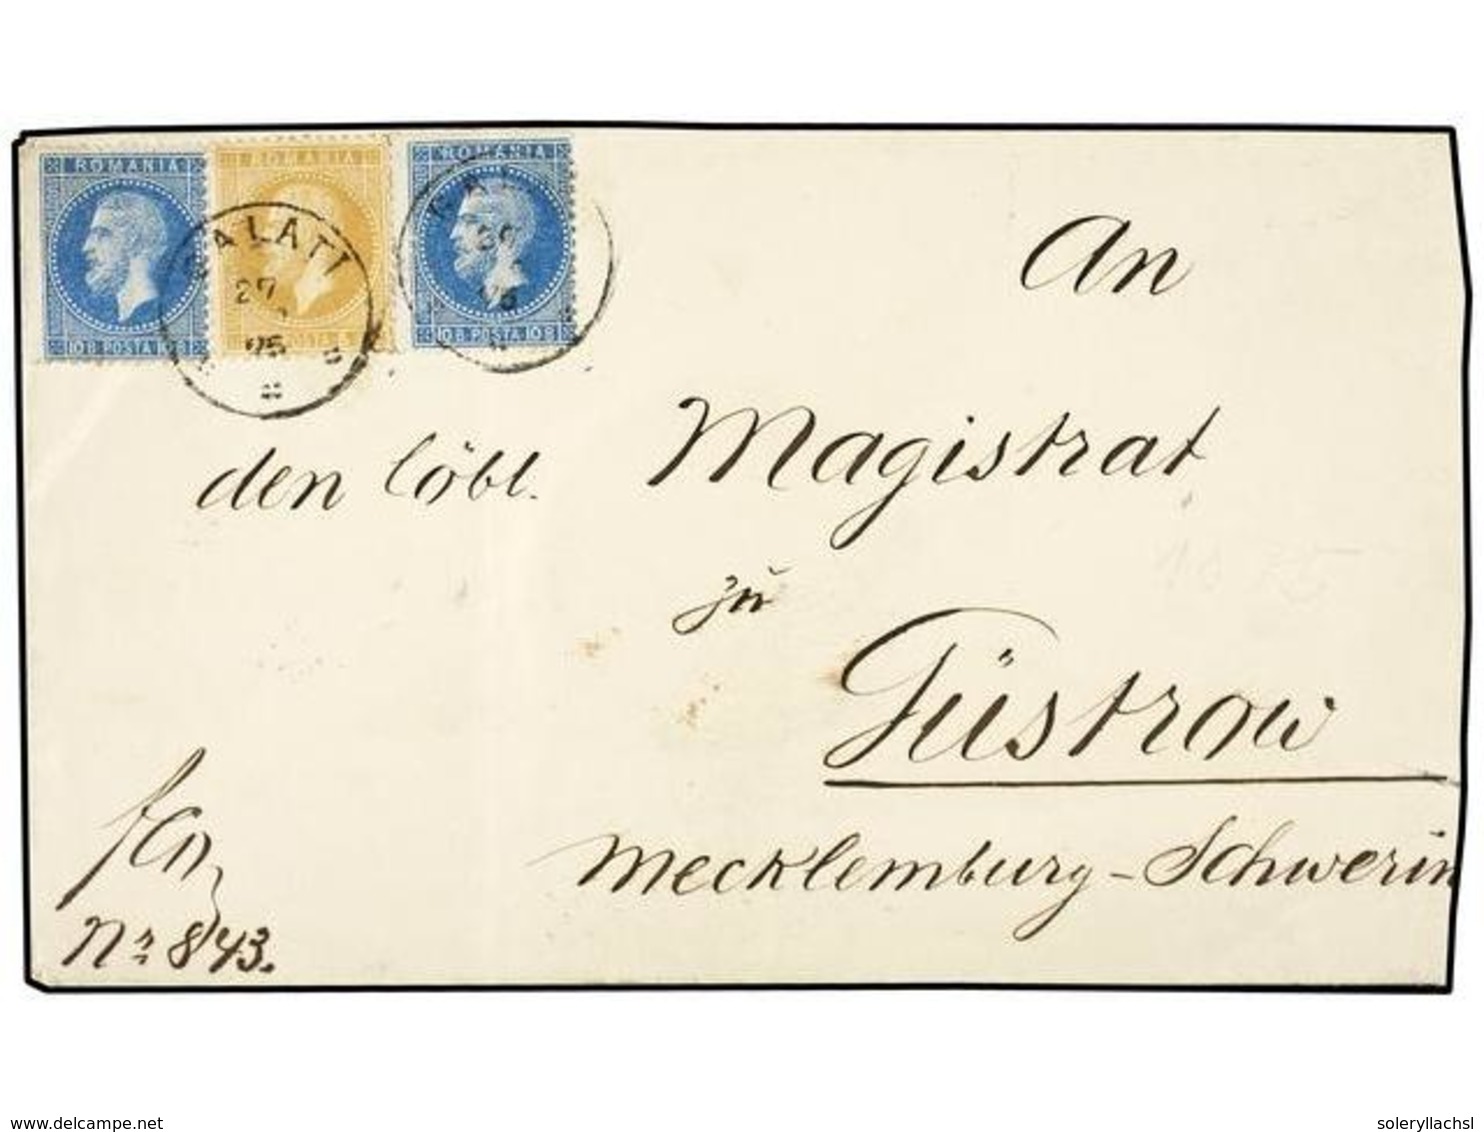 ROMANIA ROMANIA ROMANIA
GALATI
27
75
10 B. POSTA 10 B. POSTA 5 10 B. POSTA 10 B.
An
den löbl. Magistrat
zu
Güstrow
Mecklemburg-Schwerin
No 843.
www.delcampe.net
soleryllachsl